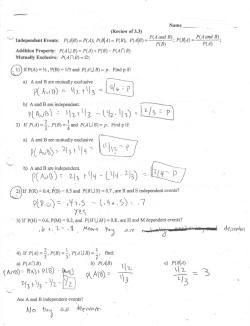 Name
(Review of 3.3)
Independent Events: P(A|B) = P(A); P(B|A) = P(B); P(A|B) = P(A and B) / P(B); P(B|A) = P(A and B) / P(A)
Addition Property: P(A∪B) = P(A) + P(B) - P(A∩B)
Mutually Exclusive: P(A∩B) = ∅
1) If P(A) = ½, P(B) = 1/3 and P(A∪B) = p. Find p if:
a) A and B are mutually exclusive
P(A∪B) = 1/2 + 1/3 = 5/6 = P
b) A and B are independent.
P(A∪B) = 1/2 + 1/3 - (1/2 · 1/3) = 2/3 = P
2) If P(A) = 2/3, P(B) = 1/4 and P(A∪B) = p. Find p if
a) A and B are mutually exclusive
P(A∪B) = 2/3 + 1/4 = 11/12 = P
b) A and B are independent.
P(A∪B) = 2/3 + 1/4 - (1/4 · 2/3) =
2) If P(R) = 0.4, P(B) = 0.5 and P(R∪B) = 0.7, are R and B independent events?
P(R∪B) = .4 + .5 - (.4 · .5) = .7
yes
3) If P(H) = 0.6, P(M) = 0.2, and P(H∪M) = 0.8, are H and M dependent events?
.6 + .2 = .8 they are dependent
4) If P(A) = 2/3, P(B) = 1/3, P(A∪B) = 1/2, find:
a) P(A∩B) b) P(A|B) c) P(B|A)
P(A∪B) = P(A) + P(B) -
2/3 + 1/3 - 1/2 = 1/2
P(A|B) = 1/2 / 1/3
1/2 / 2/3 = 3
Are A and B independent events?
No they are dependent